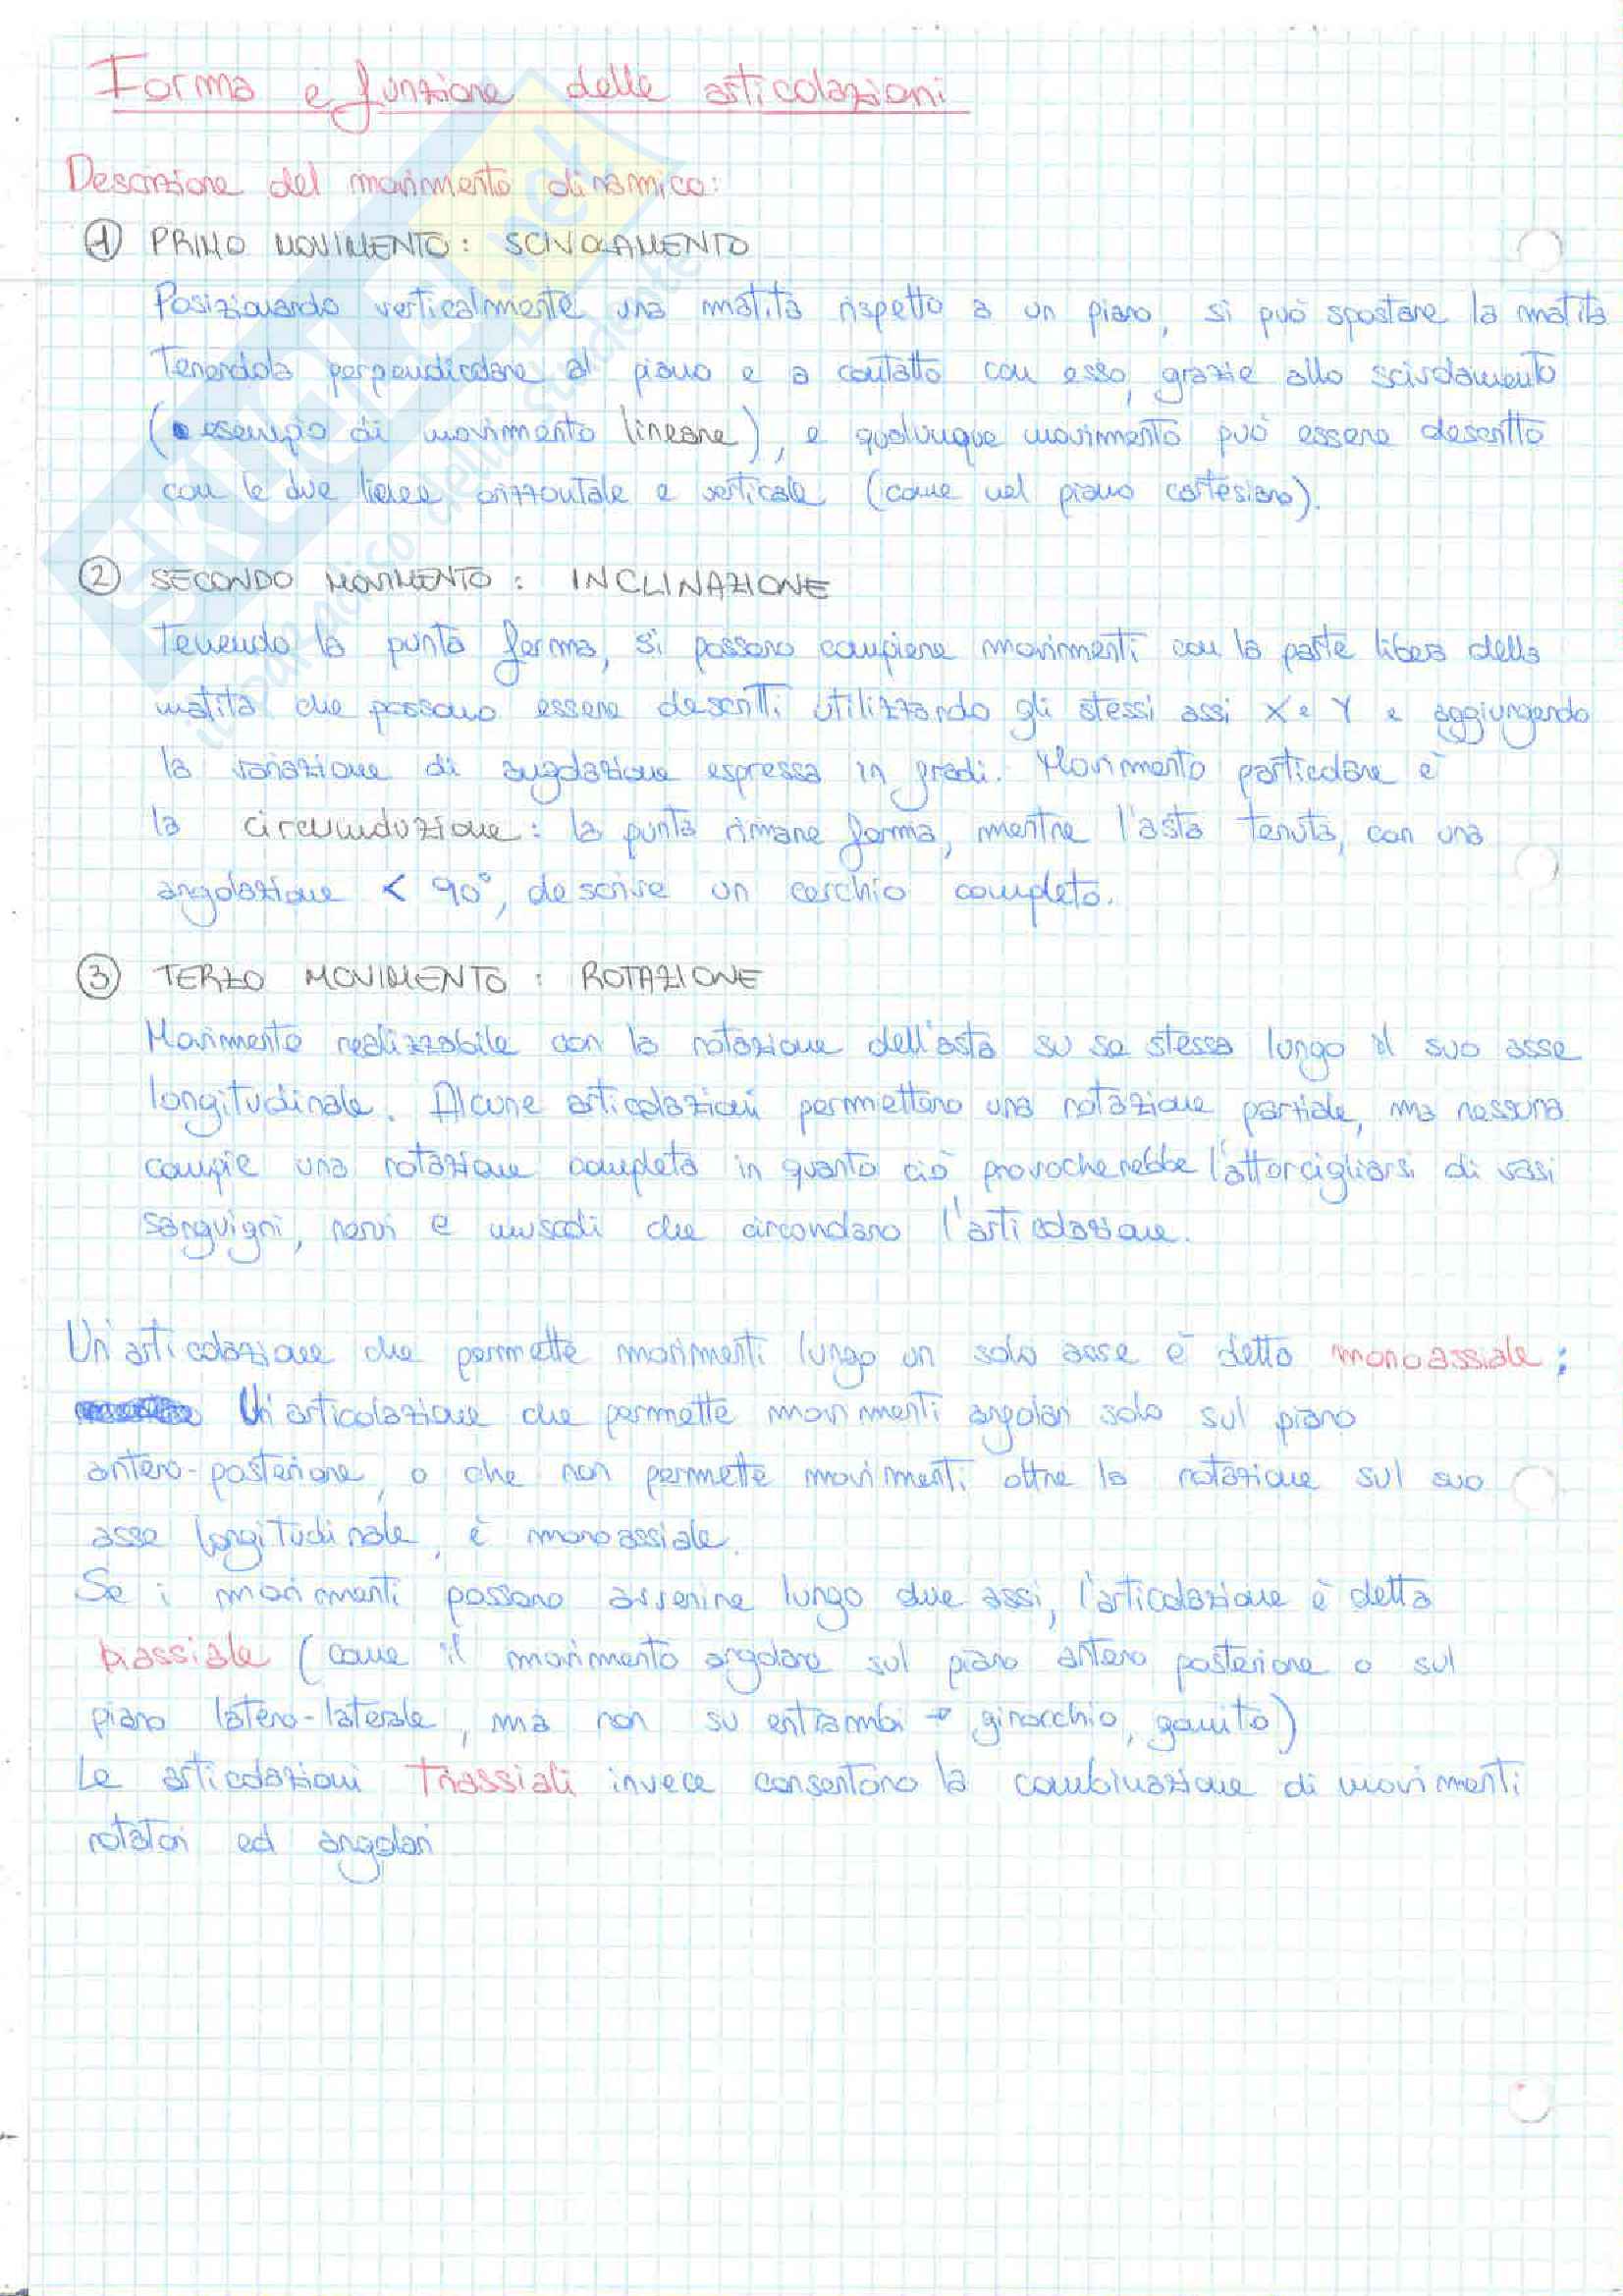 Forma e funzione delle articolazioni
Descrizione del movimento dinamico:
① PRIMO MOVIMENTO: SCIVOLAMENTO
Posizionando verticalmente una matita rispetto a un piano, si può spostare la matita
tenendola perpendicolare al piano e a contatto con esso, grazie allo scivolamento
(esempio di movimento lineare), e qualunque movimento può essere descritto
con le due linee orizzontale e verticale (come nel piano cartesiano).
② SECONDO MOVIMENTO: INCLINAZIONE
Tenendo la punta ferma, si possono compiere movimenti con la parte libera della
matita che possono essere descritti utilizzando gli stessi assi X e Y e aggiungendo
la variazione di angolazione espressa in gradi. Movimento particolare è
la circumduzione: la punta rimane ferma, mentre l'asta tenuta, con una
angolazione < 90°, descrive un cerchio completo.
③ TERZO MOVIMENTO: ROTAZIONE
Movimento realizzabile con la rotazione dell'asta su se stessa lungo il suo asse
longitudinale. Alcune articolazioni permettono una rotazione parziale, ma nessuna
compie una rotazione completa in quanto ciò provocherebbe l'attorcigliarsi di vasi
sanguigni, nervi e muscoli che circondano l'articolazione.
Un'articolazione che permette movimenti lungo un solo asse è detto monoassiale;
Un'articolazione che permette movimenti angolari solo sul piano
antero-posteriore, o che non permette movimenti oltre la rotazione sul suo
asse longitudinale, è monoassiale.
Se i movimenti possono avvenire lungo due assi, l'articolazione è detta
biassiale (come il movimento angolare sul piano antero posteriore o sul
piano latero-laterale, ma non su entrambi → ginocchio, gomito)
Le articolazioni triassiali invece consentono la combinazione di movimenti
rotatori ed angolari
SKUOLA.net
il paradiso dello studente